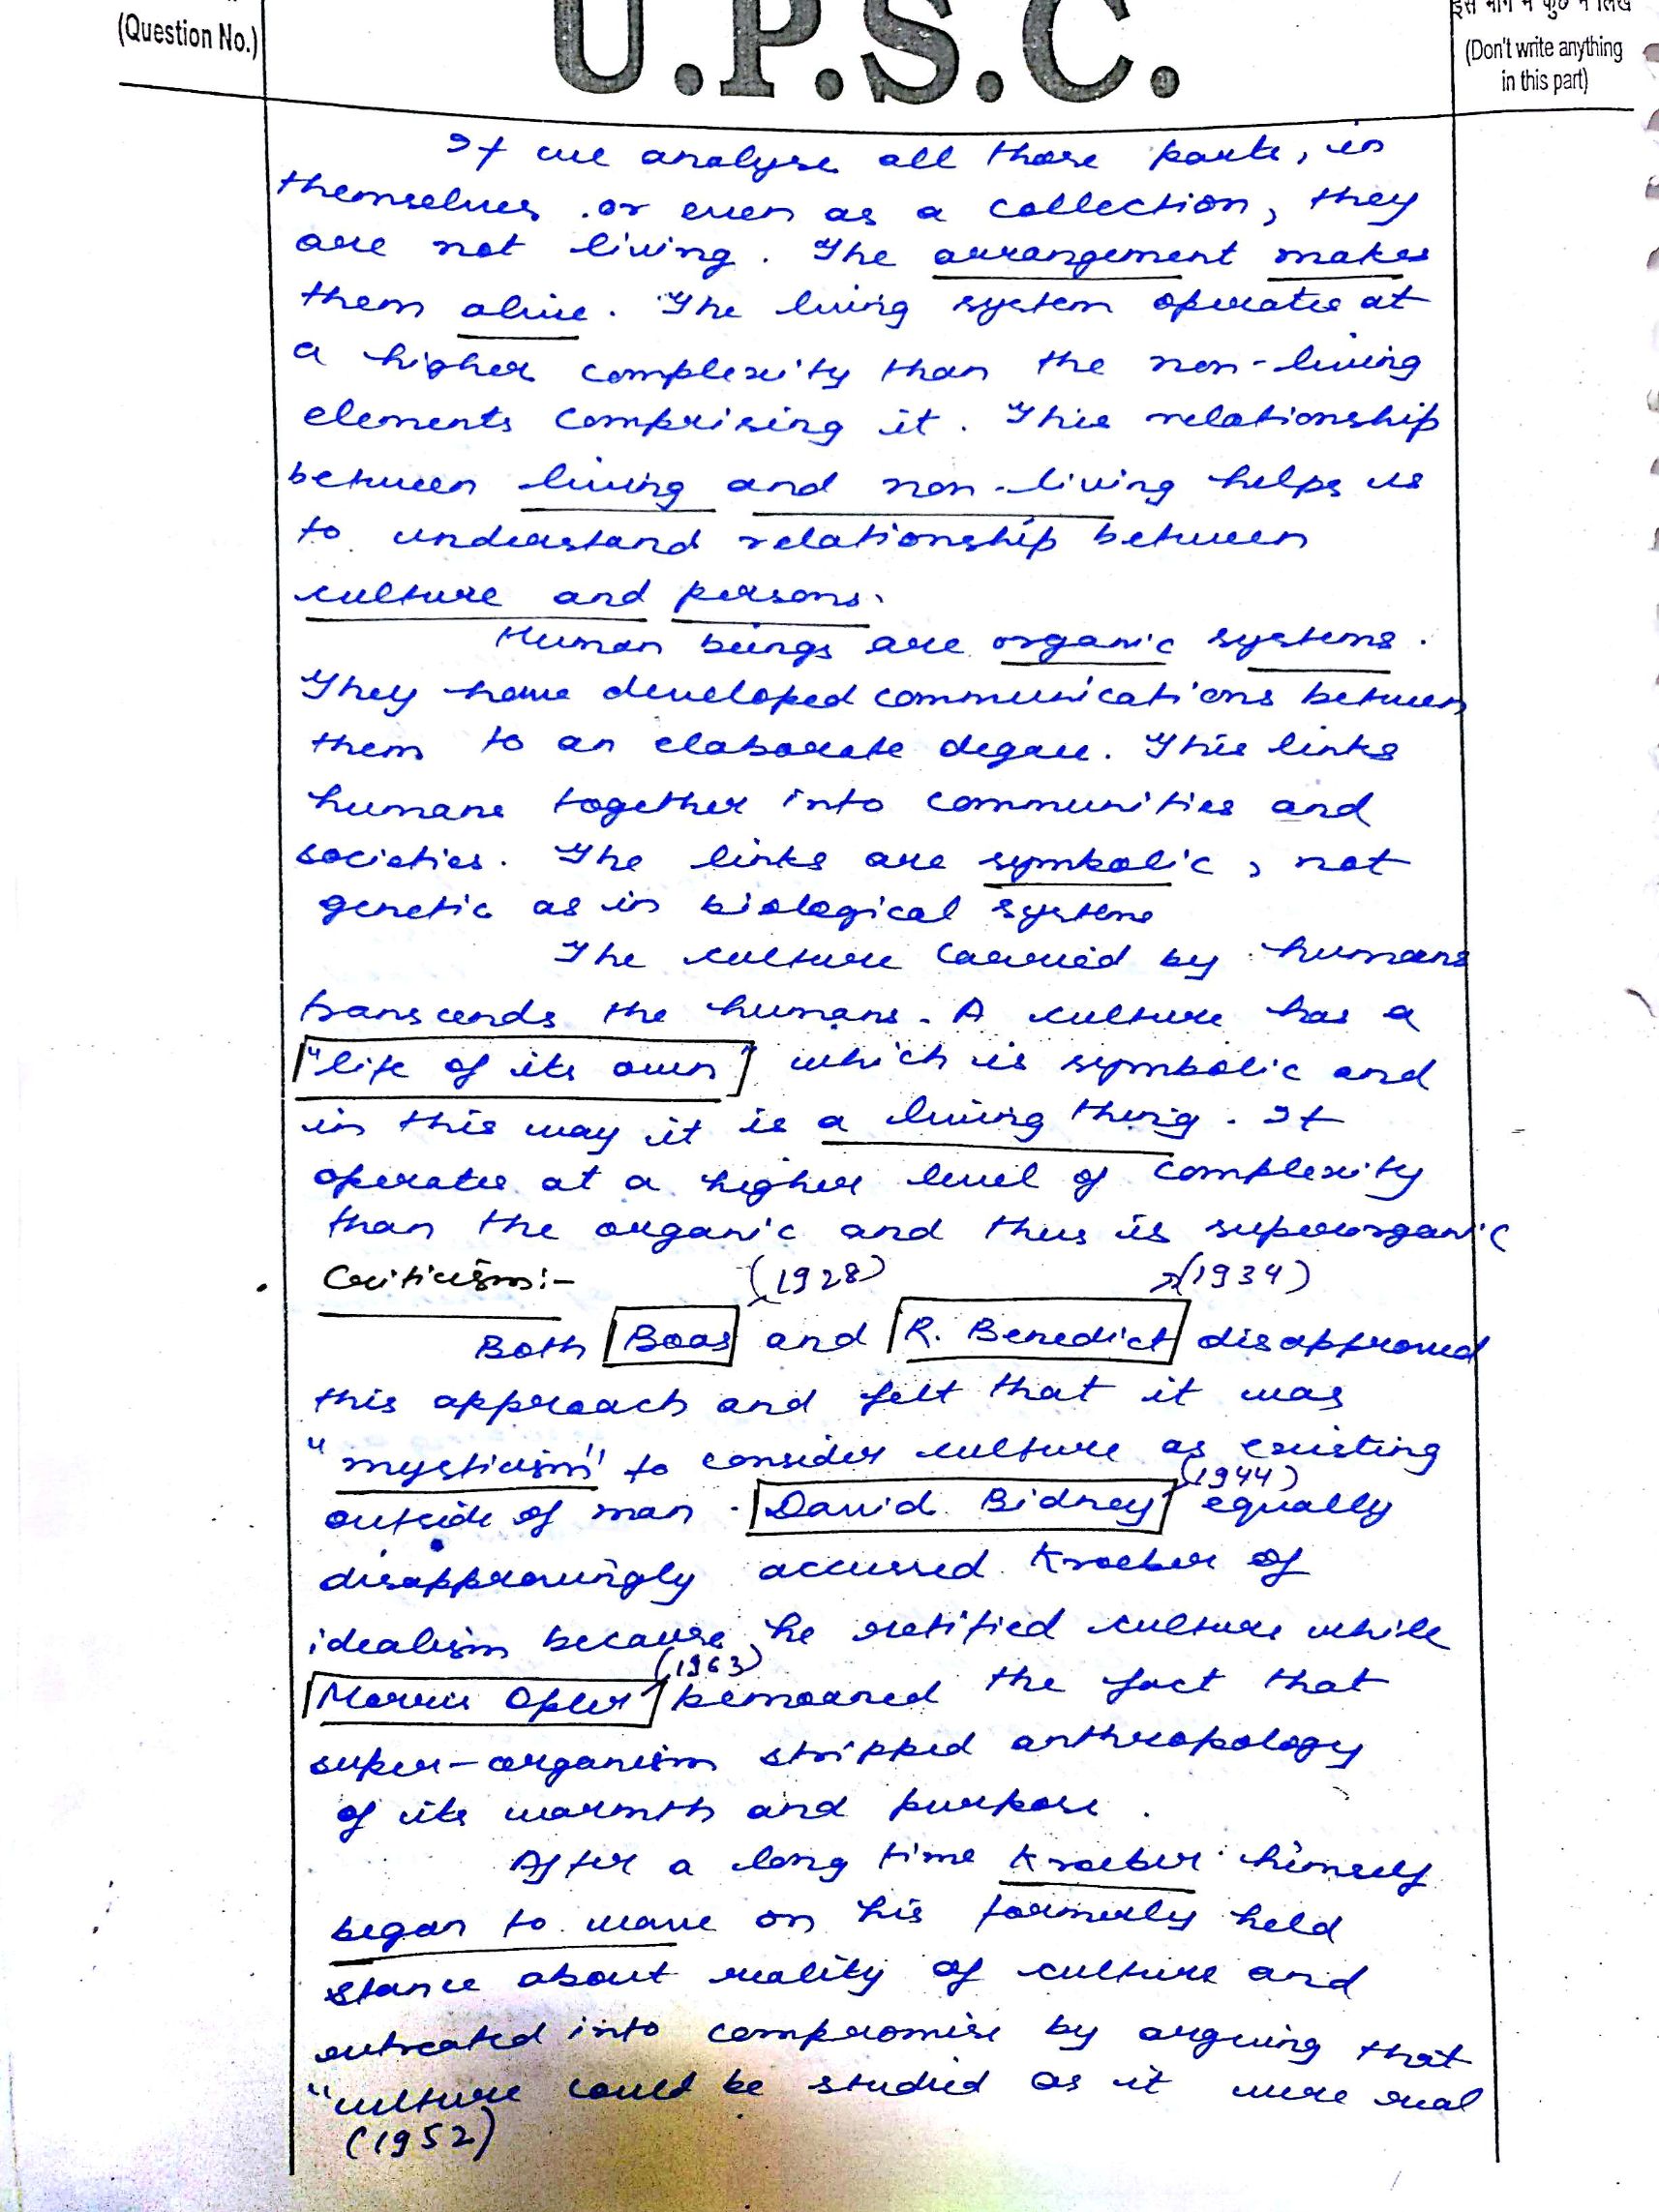 (Question No.)
U.P.S.C.
(Don't write anything
in this part)
If we analyse all those parts, in
themselves or even as a collection, they
are not living. The arrangement makes
them alive. The living system operates at
a higher complexity than the non-living
elements comprising it. This relationship
between living and non-living helps us
to understand relationship between
culture and persons.
Human beings are organic systems.
They have developed communications between
them to an elaborate degree. This links
humans together into communities and
societies. The links are symbolic, not
genetic as in biological systems
The culture carried by humans
transcends the humans. A culture has a
"life of its own" which is symbolic and
in this way it is a living thing. It
operates at a higher level of complexity
than the organic and thus is superorganic
Criticism:-
(1928) (1934)
Both Boas and R. Benedict disapproved
this approach and felt that it was
"mysticism" to consider culture as existing
(1944)
outside of man. David Bidney equally
disapprovingly accused Kroeber of
idealism because he reified culture while
(1963)
Morris Opler bemoaned the fact that
super-organism stripped anthropology
of its warmth and purpose.
After a long time Kroeber himself
began to wave on his formerly held
stance about reality of culture and
retreated into compromise by arguing that
"culture could be studied as it were real
(1952)